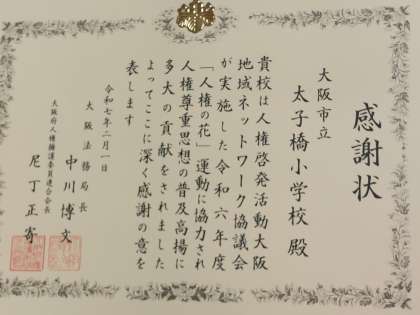 感謝状
大阪市立
太子橋小学校 殿
貴校は人権啓発活動大阪
地域ネットワーク協議会
が実施した令和六年度
「人権の花」運動に協力され
人権尊重思想の普及高揚に
多大の貢献をされました
よってここに深く感謝の意を
表します
令和七年二月一日
大阪法務局長
中川博文
大阪府人権擁護委員連合会長
尼丁正寄